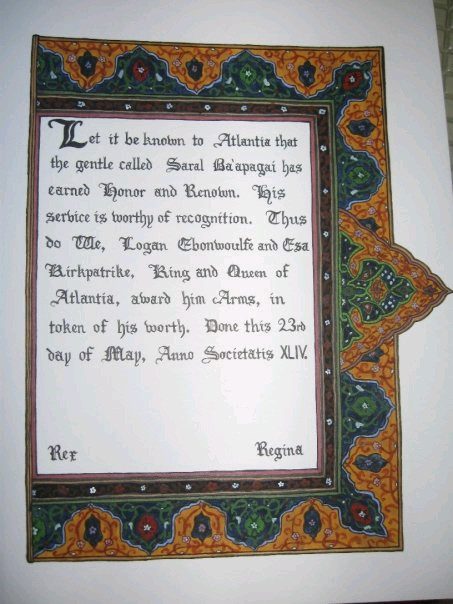 Let it be known to Atlantia that
the gentle called Saral Ba'apagai has
earned Honor and Renown. His
service is worthy of recognition. Thus
do We, Logan Ebonwoulfe and Esa
Kirkpatrike, King and Queen of
Atlantia, award him Arms, in
token of his worth. Done this 23rd
day of May, Anno Societatis XLIV.
Rex Regina